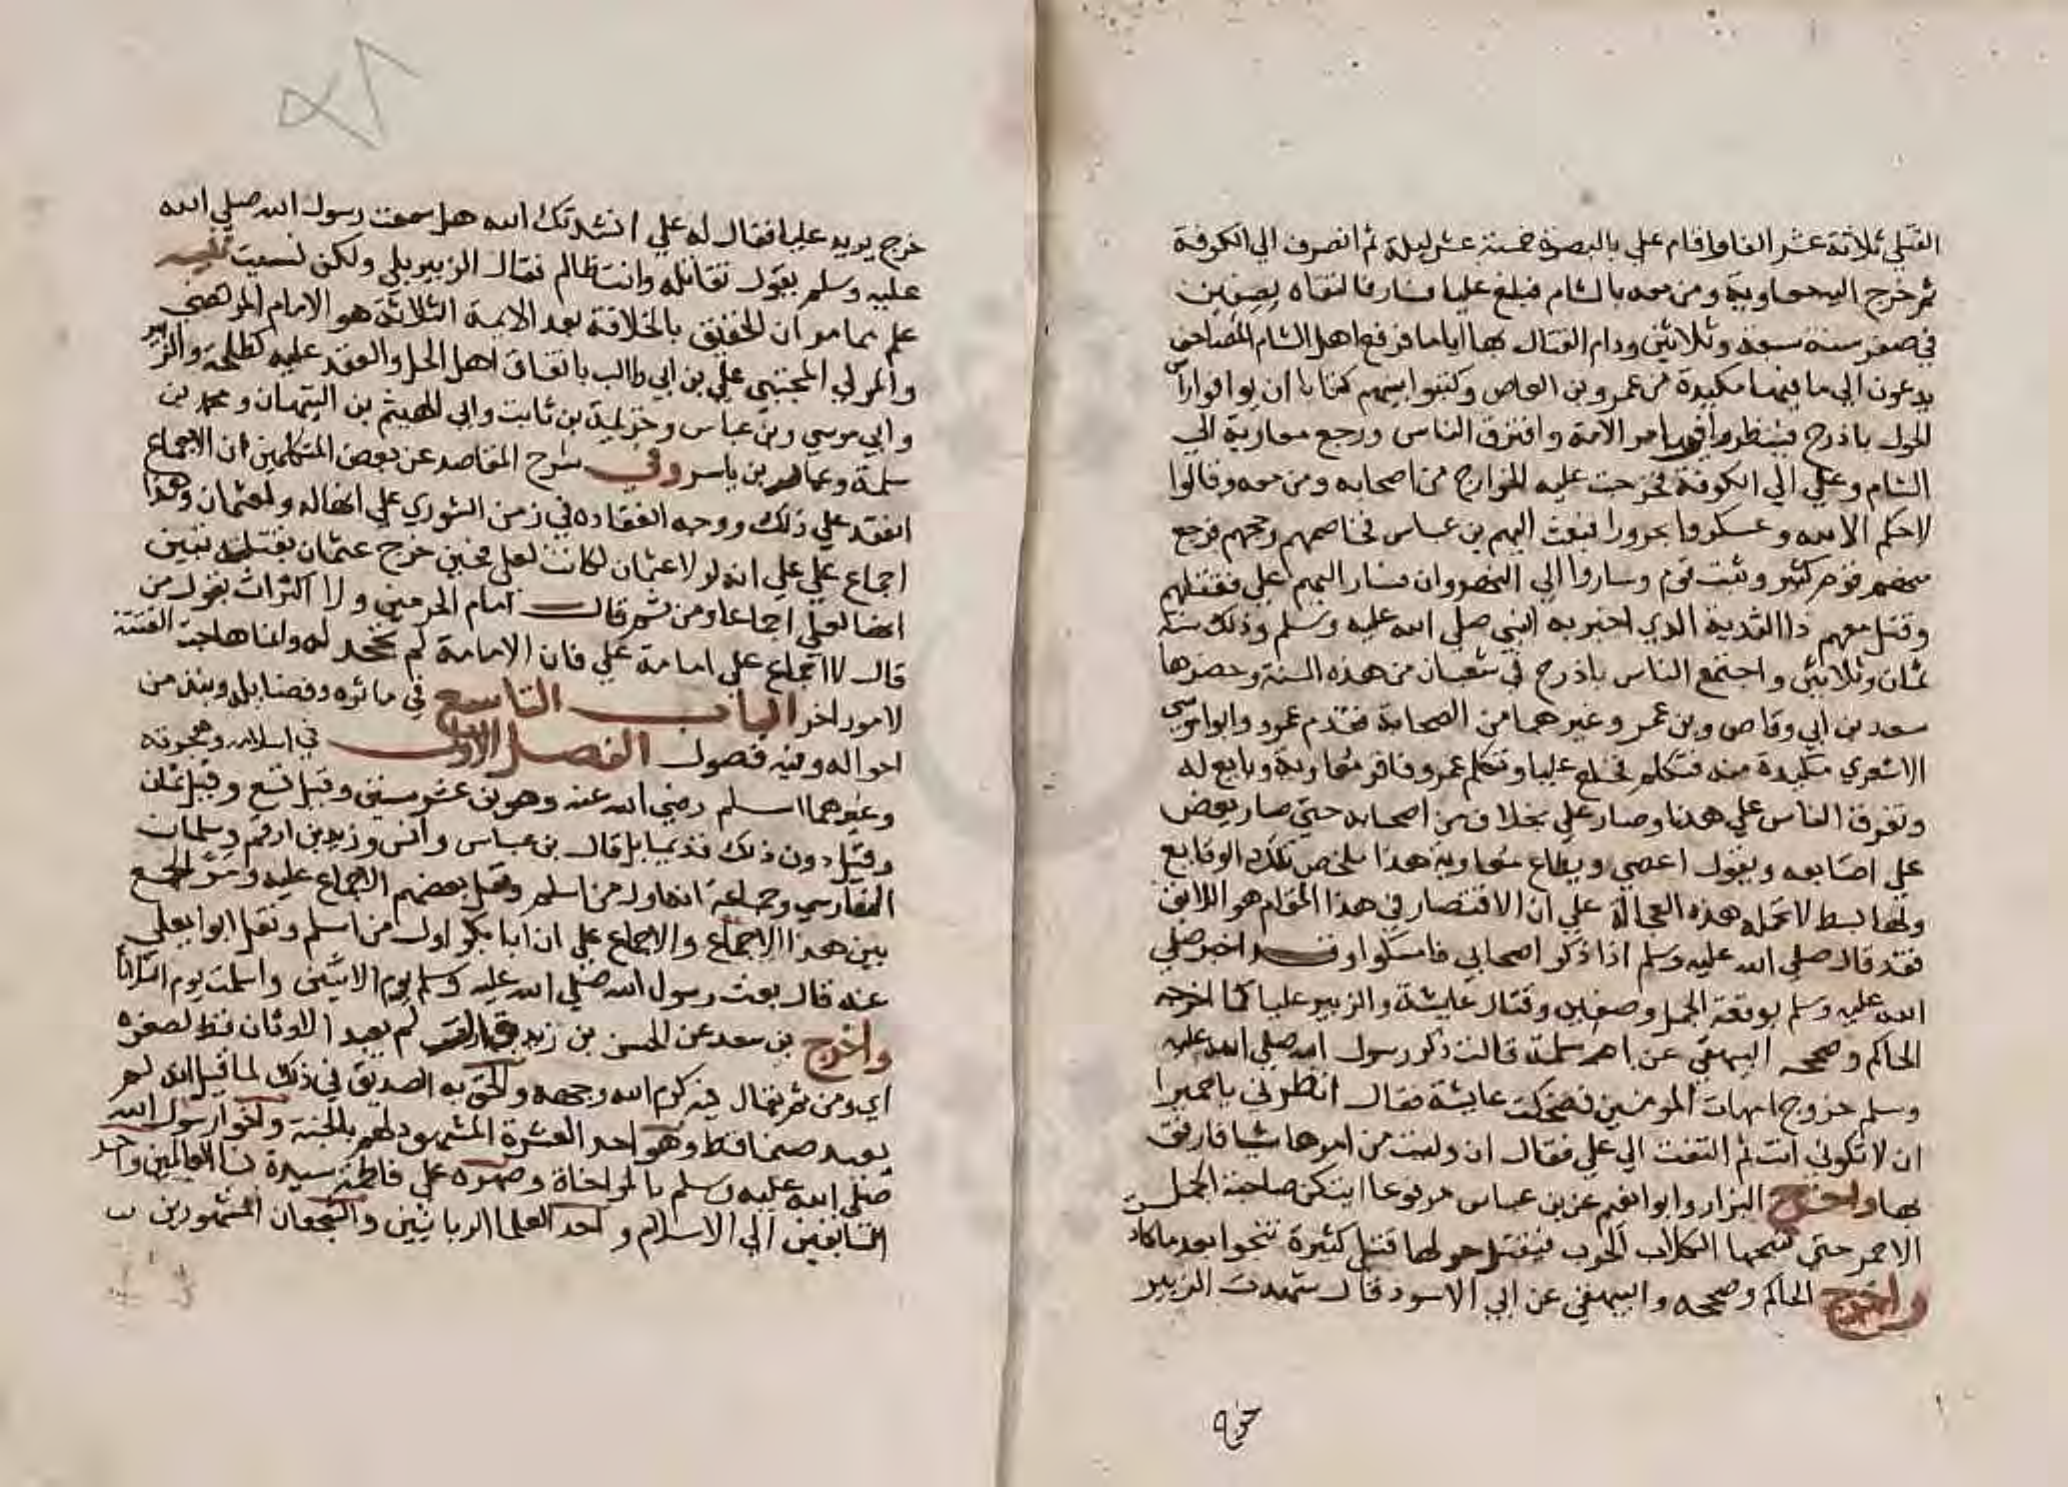 القتلي ثلاثة عشر الفا واقام علي بالبصرة خمسة عشر ليلة ثم انصرف الي الكوفة
ثم خرج اليه معاوية ومن معه بالشام فبلغ عليا فسار فالتقاه بصفين
في صفر سنة سبعة وثلاثين ودام القتال بها اياما فرفع اهل الشام المصاحف
يدعون الي ما فيها مكيدة من عمرو بن العاص وكتبوا بينهم كتابا ان يوافوا راس
الحول باذرح فينظروا في امر الامة وافترق الناس ورجع معاوية الي
الشام وعلي الي الكوفة فخرجت عليه الخوارج من اصحابه ومن معه وقالوا
لا حكم الا لله وعسكروا بحرورا فبعث اليهم بن عباس فخاصمهم وحجهم فرجع
منهم قوم كثير وثبت قوم وساروا الي النهروان فسار اليهم علي فقتلهم
وقتل معهم ذا الثدية الذي اخبر به النبي صلي الله عليه وسلم وذلك سنة
ثمان وثلاثين واجتمع الناس باذرح في شعبان من هذه السنة وحضرها
سعد بن ابي وقاص وبن عمر وغيرهما من الصحابة فقدم عمرو وابو موسي
الاشعري مكيدة منه فتكلم فخلع عليا وتكلم عمرو فاقر معاوية وبايع له
وتفرق الناس علي هذا وصار علي بخلاف من اصحابه حتي صار يعض
علي اصابعه ويقول اعصي ويطاع معاوية هذا ملخص تلك الوقايع
ولها بسط لا تحمله هذه العجالة علي ان الاقتصار في هذا المقام هو اللائق
فقد قال صلي الله عليه وسلم اذا ذكر اصحابي فامسكوا وقد اخبر صلي
الله عليه وسلم بوقعة الجمل وصفين وقتال عايشة والزبير عليا كما اخرجه
الحاكم وصححه البيهقي عن ام سلمة قالت ذكر رسول الله صلي الله عليه
وسلم خروج امهات المومنين فضحكت عايشة فقال انظري يا حميرا
ان لا تكوني انت ثم التفت الي علي فقال ان وليت من امرها شيا فارفق
بها واخرج البزار وابو نعيم عن بن عباس مرفوعا ايتكن صاحبة الجمل
الاحمر حتي تنبحها الكلاب الحوب فيقتل حولها قتلي كثيرة تنجوا بعد ما كاد
واخرج الحاكم وصححه والبيهقي عن ابي الاسود قال شهدت الزبير
خرج
خرج يريد عليا فقال له علي انشدتك الله هل سمعت رسول الله صلي الله
عليه وسلم يقول تقاتله وانت ظالم فقال الزبير بلي ولكن نسيت تنبيه
علم مما مر ان الحقيق بالخلافة بعد الايمة الثلاثة هو الامام المرتضي
والمولي المجتبي علي بن ابي طالب باتفاق اهل الحل والعقد عليه كطلحة والزبير
وابي موسي وبن عباس وخزيمة بن ثابت وابي الهيثم بن التيهان ومحمد بن
سلمة وعمار بن ياسر وفي شرح المقاصد عن بعض المتكلمين ان الاجماع
انعقد علي ذلك ووجه انعقاده في زمن الشوري علي انها له ولعثمان وهذا
اجماع علي علي انه لو لا عثمان لكانت لعلي فحين خرج عثمان بقتله بقيت
انها لعلي اجماعا ومن ثم قال امام الحرمين ولا اكتراث بقول من
قال لا اجماع علي امامة علي فان الامامة لم تجحد له وانما هاجت الفتنة
لامور اخر الباب التاسع في ماثره وفضايله ونبذ من
احواله وفيه فصول الفصل الاول في اسلامه وهجرته
وغيرهما اسلم رضي الله عنه وهو بن عشر سنين وقيل تسع وقيل ثمان
وقيل دون ذلك قديما بل قال بن عباس وانس وزيد بن ارقم وسلمان
الفارسي وجماعة انه اول من اسلم ونقل بعضهم الاجماع عليه ومر الجمع
بين هذا الاجماع والاجماع علي ان ابا بكر اول من اسلم ونقل ابو يعلي
عنه قال بعث رسول الله صلي الله عليه وسلم يوم الاثنين واسلمت يوم الثلاثا
واخرج بن سعد عن الحسن بن زيد قال لم يعبد الاوثان قط لصغره
اي ومن ثم يقال فيه كرم الله وجهه والحق به الصديق في ذلك لما قيل انه لم
يعبد صنما قط وهو احد العشرة المشهود لهم بالجنة واخو رسول الله
صلي الله عليه وسلم بالمواخاة وصهره علي فاطمة سيدة نسا العالمين واحد
السابقين الي الاسلام واحد العلما الربانيين والشجعان المشهورين